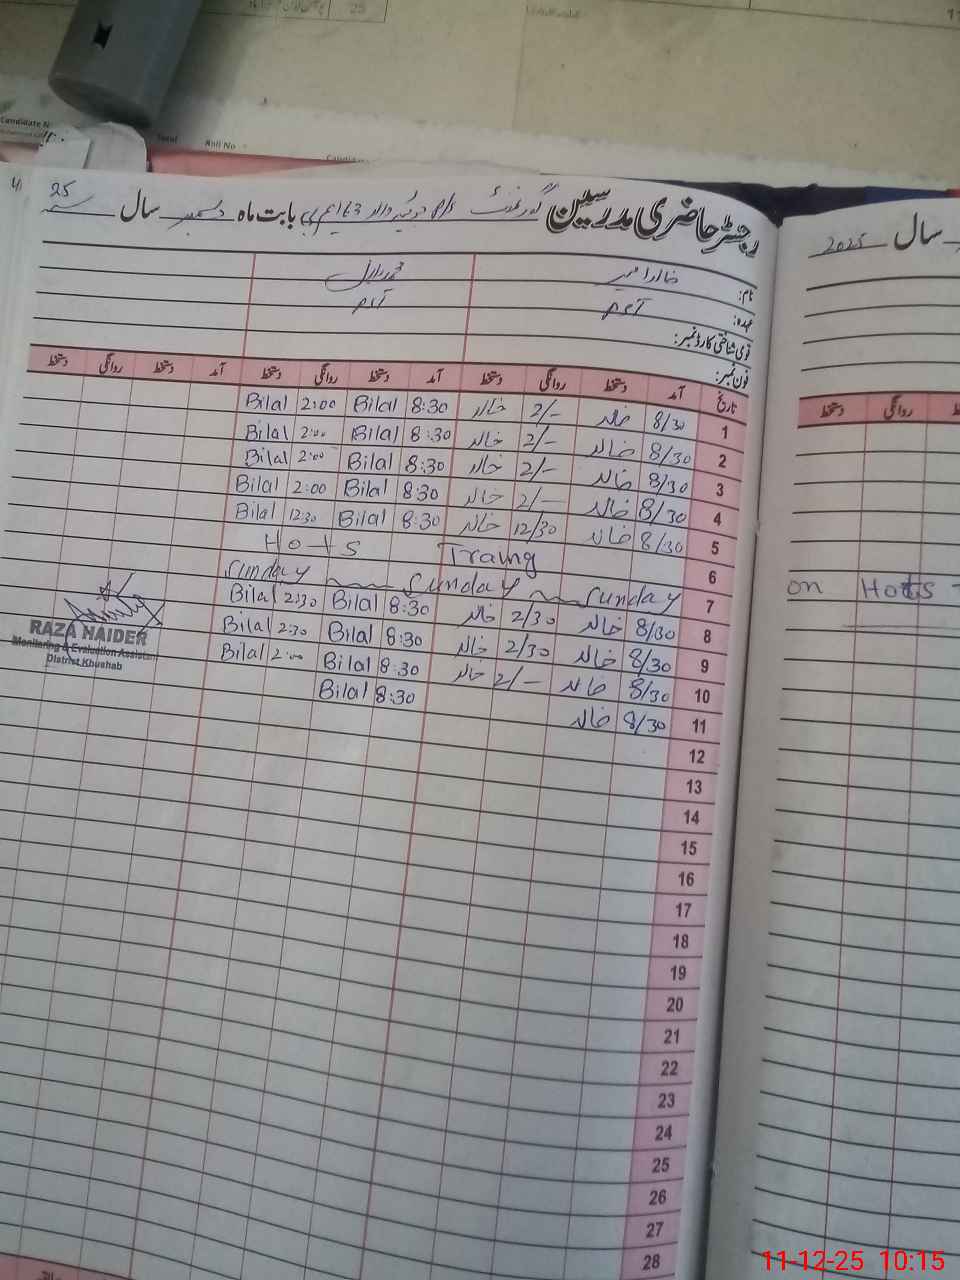 25
Candidate N
Roll No
رجسٹر حاضری مدرسین گورنمنٹ بابت ماہ دسمبر سال 25
سال 2025
نام:
عہدہ:
قومی شناختی کارڈ نمبر:
فون نمبر:
تاریخ آمد دستخط روانگی دستخط آمد دستخط روانگی دستخط آمد دستخط روانگی دستخط
دستخط روانگی
1 8/30 خالد 2/- خالد 8:30 Bilal 2:00 Bilal
2 8/30 خالد 2/- خالد 8:30 Bilal 2:00 Bilal
3 8/30 خالد 2/- خالد 8:30 Bilal 2:00 Bilal
4 8/30 خالد 2/- خالد 8:30 Bilal 2:00 Bilal
5 8/30 خالد 12/30 خالد 8:30 Bilal 12:30 Bilal
6 Hots Traing
7 Sunday Sunday Sunday
8 8/30 خالد 2/30 خالد 8:30 Bilal 2:30 Bilal
9 8/30 خالد 2/30 خالد 8:30 Bilal 2:30 Bilal
10 8/30 خالد 2/- خالد 8:30 Bilal 2:00 Bilal
11 8/30 خالد 8:30 Bilal
on Hots
RAZA HAIDER
Monitoring & Evaluation Assistant
District Khushab
12
13
14
15
16
17
18
19
20
21
22
23
24
25
26
27
28
11-12-25 10:15